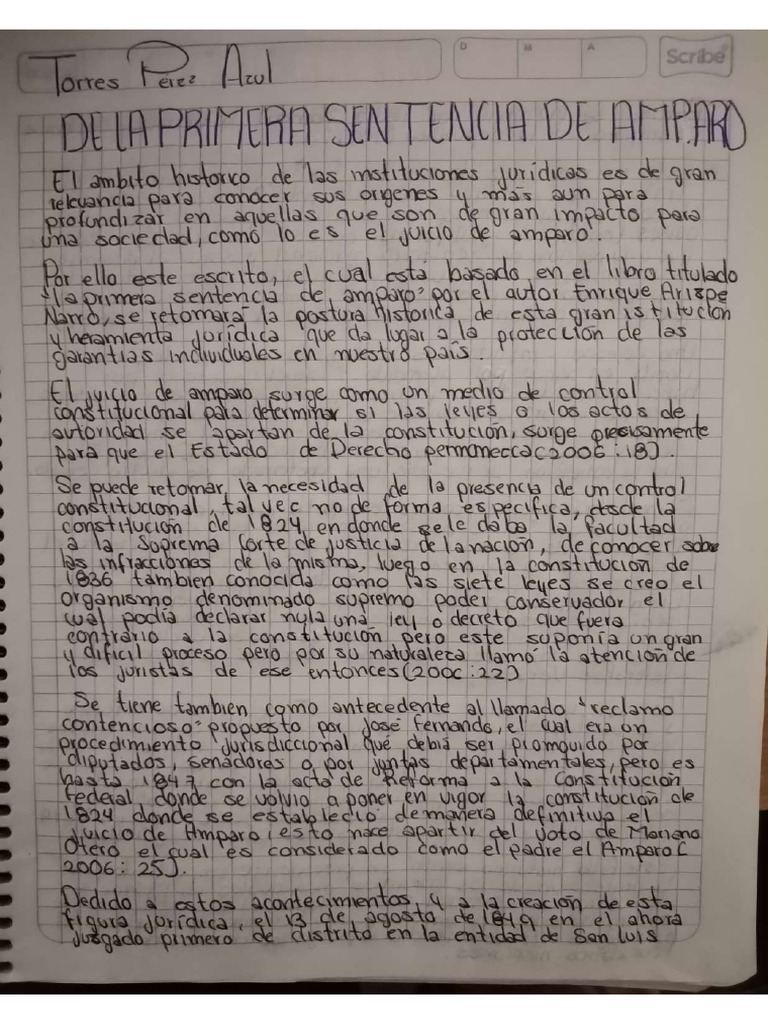 Torres Pérez Azul
D M A
Scribe
DE LA PRIMERA SENTENCIA DE AMPARO
El ambito historco de las instituciones jurídicas es de gran
relevancia para conocer sus orgenes y más aun para
profundizar en aquellas que son de gran impacto para
una sociedad, como lo es el juicio de amparo.
Por ello este escrito, el cual está basado en el libro titulado
"la primera sentencia de amparo" por el autor Enrique Arizpe
Narro, se retomará la postura historica de esta gran istitución
y heramienta jurídica que da lugar a la protección de las
garantías individuales en nuestro país.
El juicio de amparo surge como un medio de control
constitucional para determinar si las leyes o los actos de
autoridad se apartan de la constitución, surge presisamente
para que el Estado de Derecho permanecca(2006:18).
Se puede retomar, la necesidad de la presencia de un control
constitucional, tal vec no de forma especifica, desde la
constitución de 1824, en donde se le daba la facultad
a la Suprema Corte de justicia de la nación, de conocer sobre
las infracciones de la misma, luego en la constitución de
1836 tambien conocida como las siete leyes se creo el
organismo denominado supremo poder conservador el
cual podía declarar nula una ley o decreto que fuera
contrario a la constitución pero este suponía un gran
y dificil proceso pero por su naturaleza llamó la atención de
los juristas de ese entonces(2006:22)
Se tiene tambien como antecedente al llamado "reclamo
contencioso" propuesto por José Fernando, el cual era un
procedimiento jurisdiccional que debía ser promovido por
diputados, senadores o por juntas departamentales, pero es
hasta 1847 con la acta de Reforma a la Constitución
Federal, donde se volvio a poner en vigor la constitución de
1824 donde se establecio de manera definitiva el
juicio de Amparo, esto nace apartir del voto de Mariano
Otero el cual es considerado como el padre el Amparo(
2006:25).
Dedido a estos acontecimientos, y a la creación de esta
figura jurídica, el 13 de agosto de 1849 en el ahora
juzgado primero de distrito en la entidad de San Luis